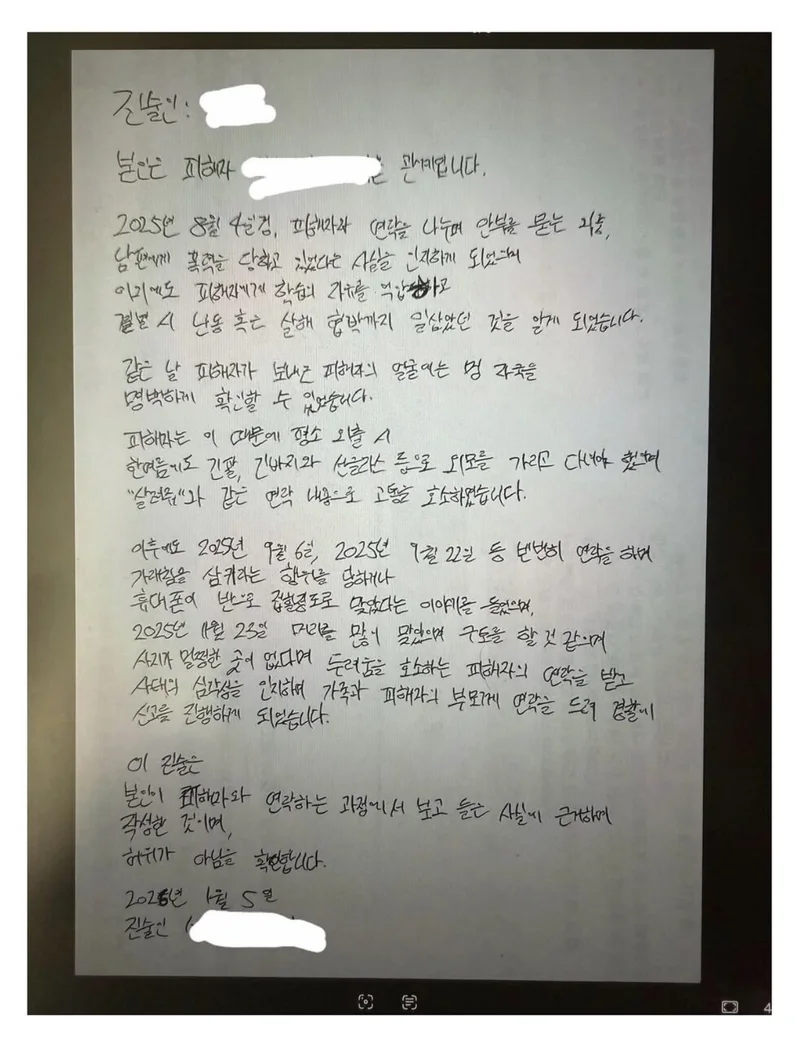 진술인:
본인은 피해자 관계입니다.
2025년 8월 4일경, 피해자와 연락을 나누며 안부를 묻는 이후,
남편에게 폭력을 당하고 있었다는 사실을 인지하게 되었으며
이외에도 피해자에게 학습의 자유를 억압하고
결별 시 난동 혹은 살해 협박까지 일삼았던 것을 알게 되었습니다.
같은 날 피해자가 보내온 피해자의 얼굴에는 멍 자국을
명백하게 확인할 수 있었습니다.
피해자는 이 때문에 평소 외출 시
한여름에도 긴팔, 긴바지와 선글라스 등으로 외모를 가리고 다녀야 했으며
"살려줘"와 같은 연락 내용으로 고통을 호소하였습니다.
이후에도 2025년 9월 6일, 2025년 9월 22일 등 빈번히 연락을 하며
가래침을 삼키라는 행위를 당하거나
휴대폰이 반으로 접힐정도로 맞았다는 이야기를 들었으며,
2025년 11월 23일 머리를 많이 맞았으며 구토를 할 것 같으며
사지가 멀쩡한 곳이 없다며 두려움을 호소하는 피해자의 연락을 받고
사태의 심각성을 인지하여 가족과 피해자의 부모에게 연락을 드려 경찰에
신고를 진행하게 되었습니다.
이 진술은
본인이 피해자와 연락하는 과정에서 보고 들은 사실에 근거하며
작성한 것이며,
허위가 아님을 확인합니다.
2026년 1월 5일
진술인
4